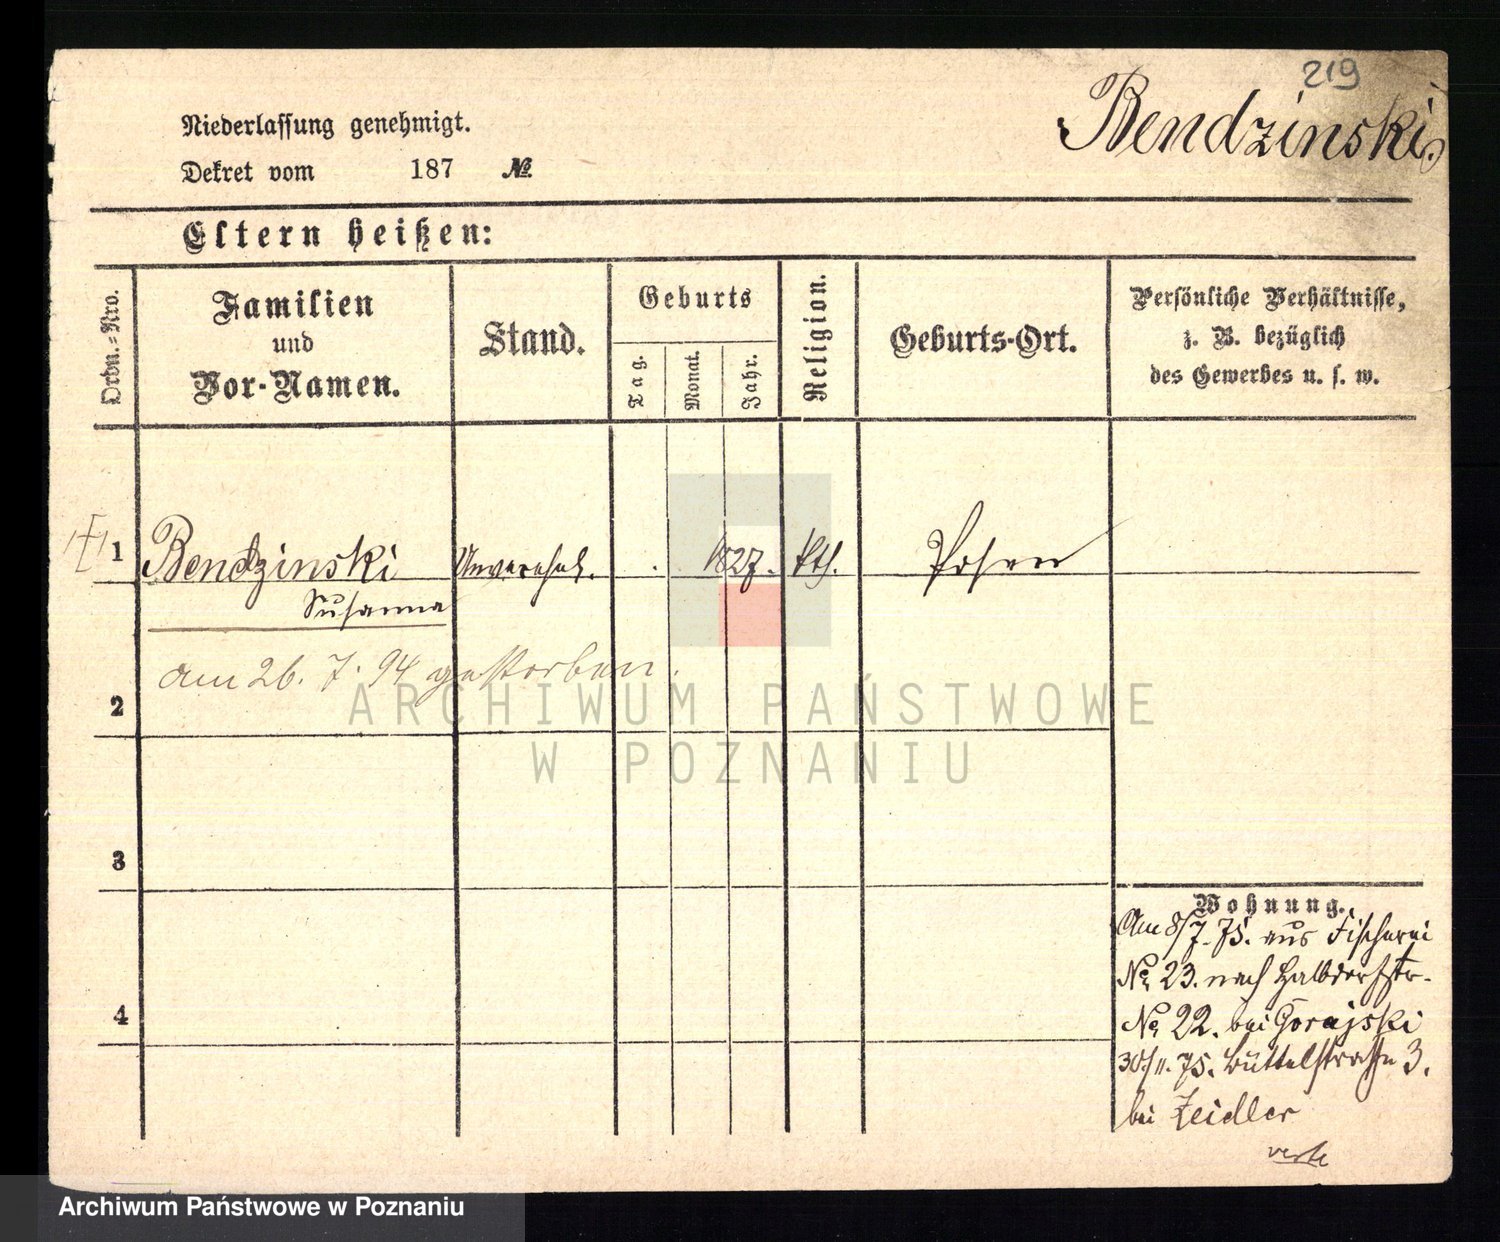 219
Bendzinski.
Niederlassung genehmigt.
Dekret vom 187 №
Eltern heißen:
Ordn.=Nro.
Familien
und
Vor-Namen.
Stand.
Geburts
Tag.
Monat.
Jahr.
Religion.
Geburts-Ort.
Persönliche Verhältnisse,
z. B. bezüglich
des Gewerbes u. s. w.
1 Bendzinski Unverehel. 1827. kth. Posen
Susanna
am 26. 7. 94 gestorben.
2
3
4
Wohnung.
Am 8/7. 75. aus Fischerei
№ 23. nach Halbdorfstr.
№ 22. bei Gorajski
30/11. 75. Büttelstraße 3.
bei Zeidler
verte
ARCHIWUM PAŃSTWOWE
W POZNANIU
Archiwum Państwowe w Poznaniu